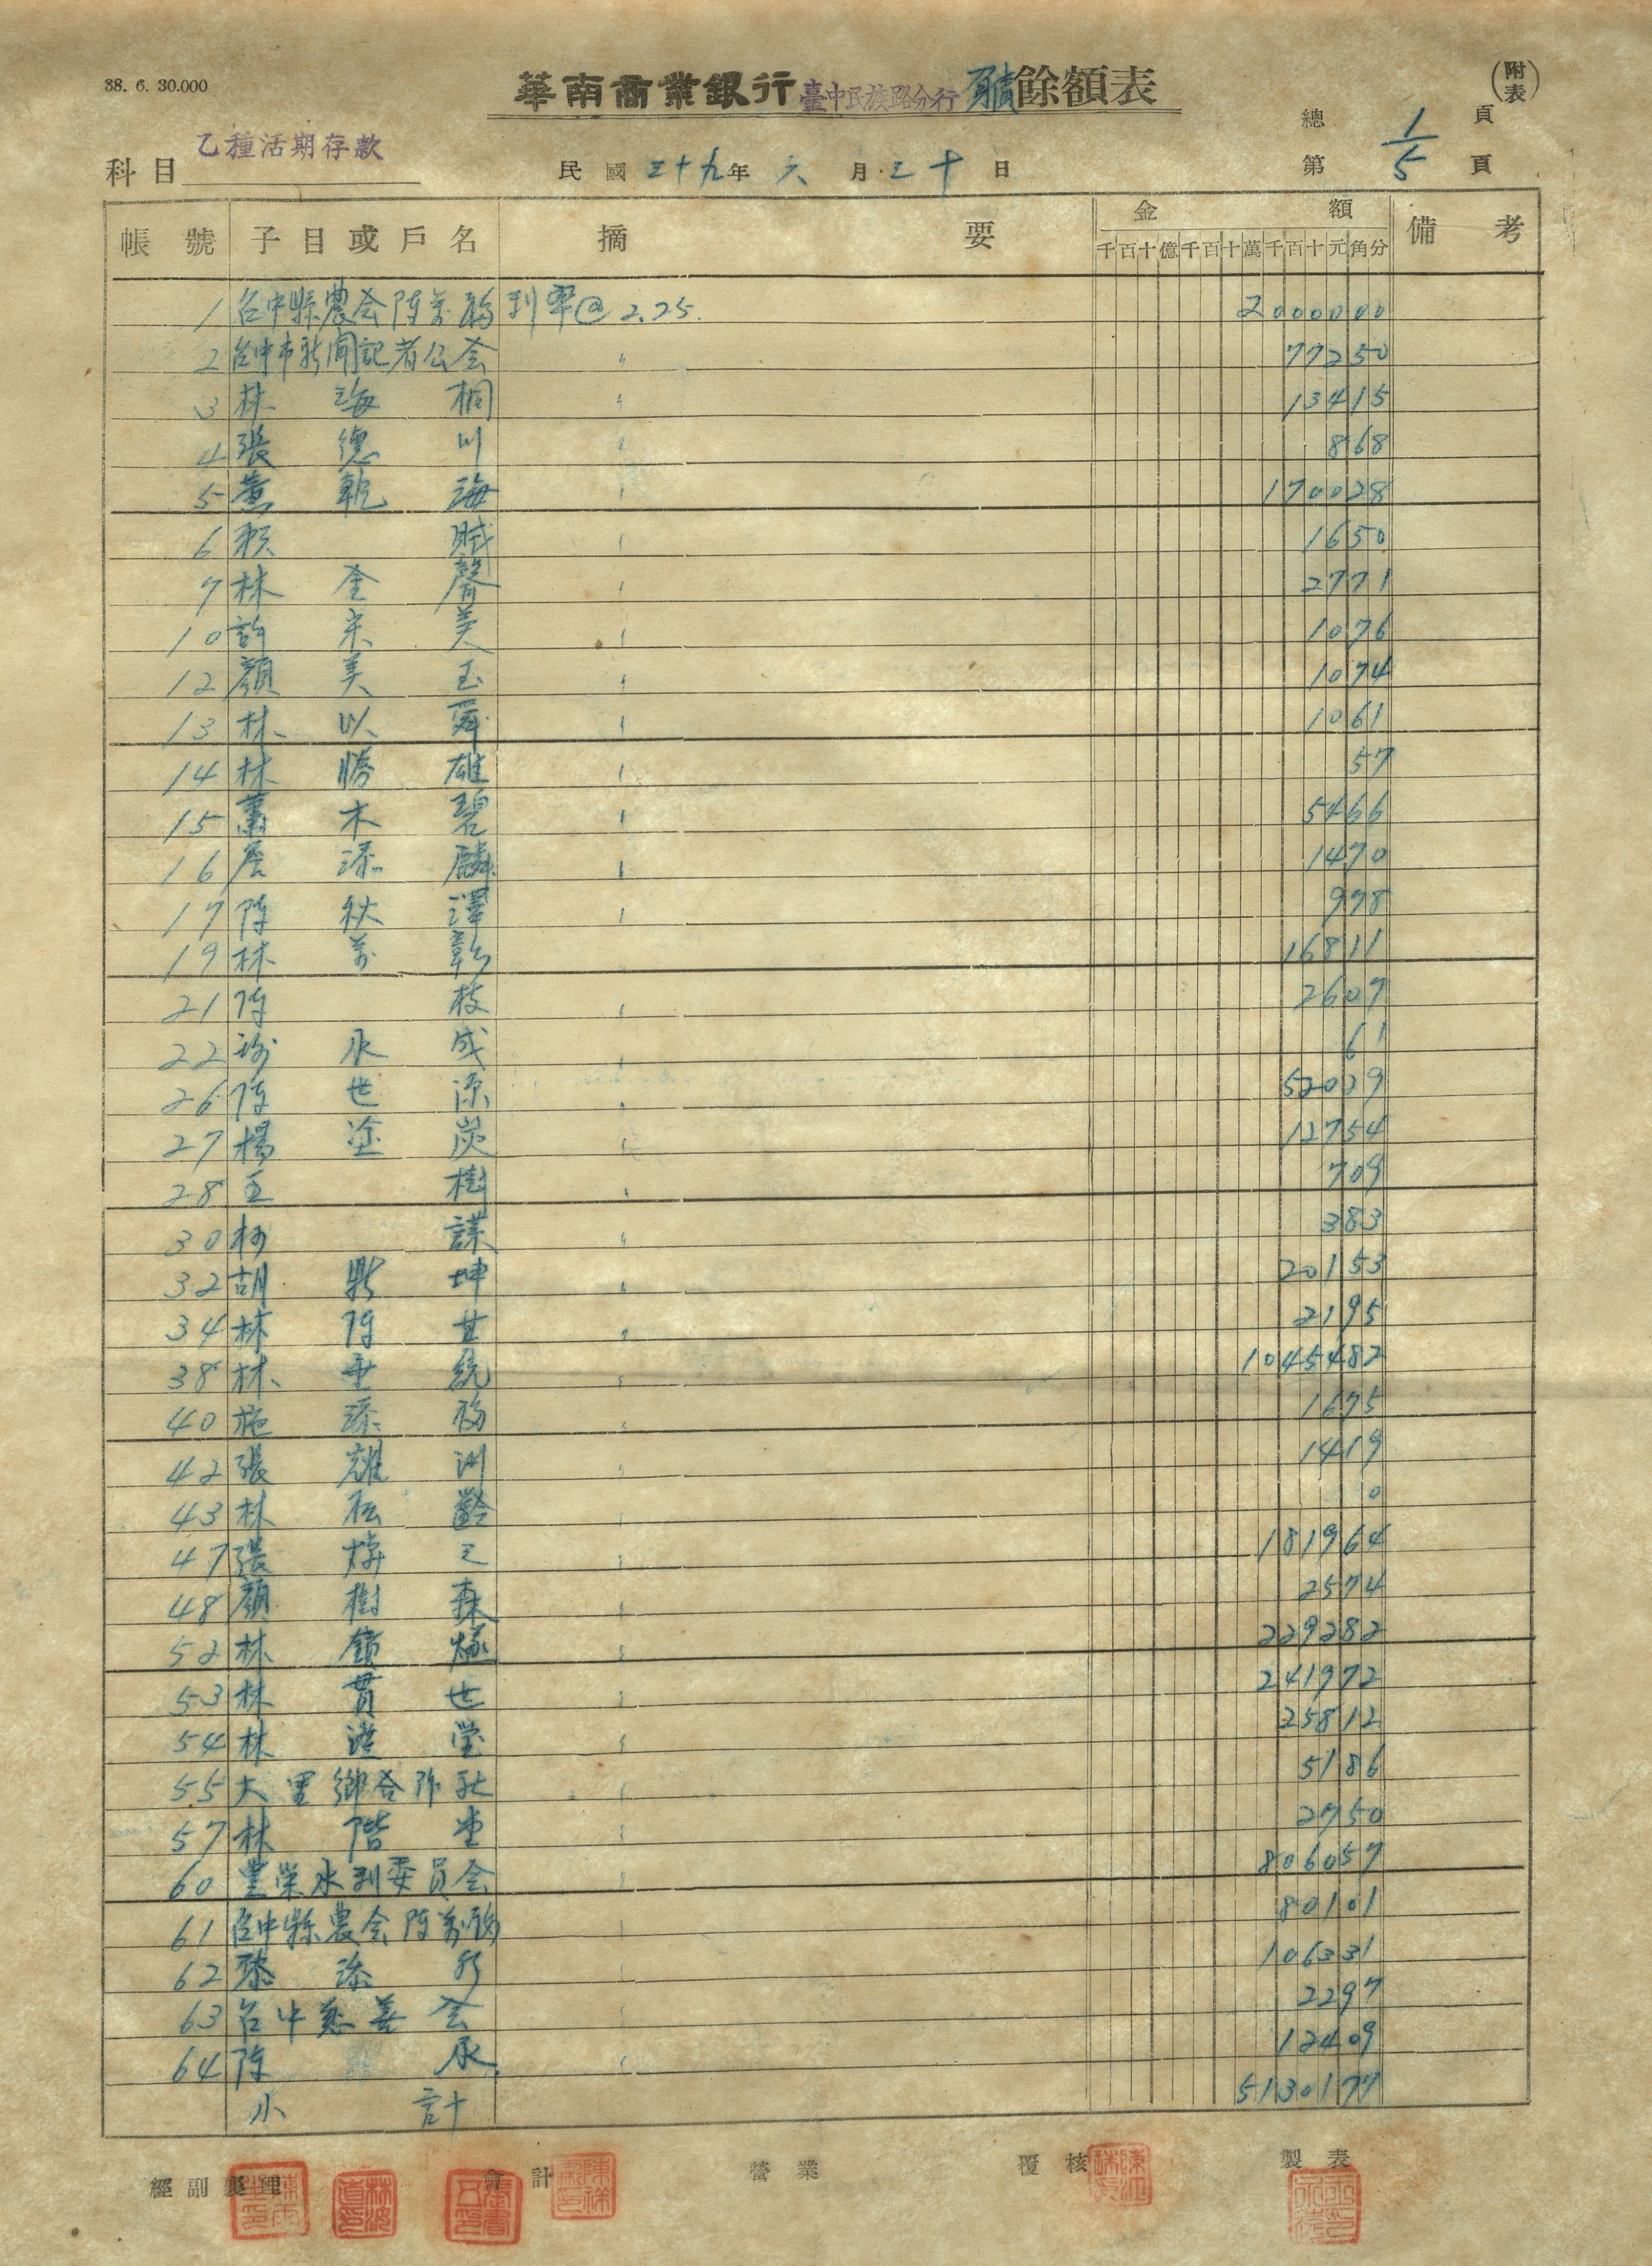 38. 6. 30.000
華南商業銀行臺中民族路分行負債餘額表
(附表)
總 1 頁
第 5 頁
科目 乙種活期存款
民國三十九年六月三十日
帳號 子目或戶名 摘要 金額 備考
千百十億千百十萬千百十元角分
1 台中縣農会陳萬福 利率@2.25. 2000000
2 台中市新聞記者公会 〃 77250
3 林海桐 〃 13415
4 張德川 〃 868
5 黃乾海 〃 170028
6 賴賦 〃 1650
7 林金聲 〃 2771
10 許宋美 〃 1076
12 顏美玉 〃 1074
13 林以舜 〃 1061
14 林勝雄 〃 57
15 葉木碧 〃 5466
16 詹添麟 〃 1470
17 陳秋澤 〃 978
19 林萬彰 16811
21 陳枝 〃 2607
22 謝永成 〃 61
26 陳世添 〃 52029
27 楊塗炭 〃 12754
28 王樹 〃 709
30 柯謀 〃 383
32 胡鼎坤 〃 20153
34 林陳甘 〃 2195
38 林垂統 〃 1045482
40 施添福 〃 1675
42 張耀洲 〃 1419
43 林松齡 〃 0
47 張煥三 〃 181964
48 顏樹森 〃 2574
52 林鎮 〃 229282
53 林貫世 〃 241972
54 林瑩 〃 25812
55 大里鄉合作社 〃 5186
57 林階堂 〃 2750
60 豐榮水利委員会 806057
61 台中縣農会陳萬福 〃 80101
62 添 〃 106331
63 台中慈善会 〃 2297
64 陳永 〃 12409
小計 5130177
經副襄理 會計 營業 覆核 製表